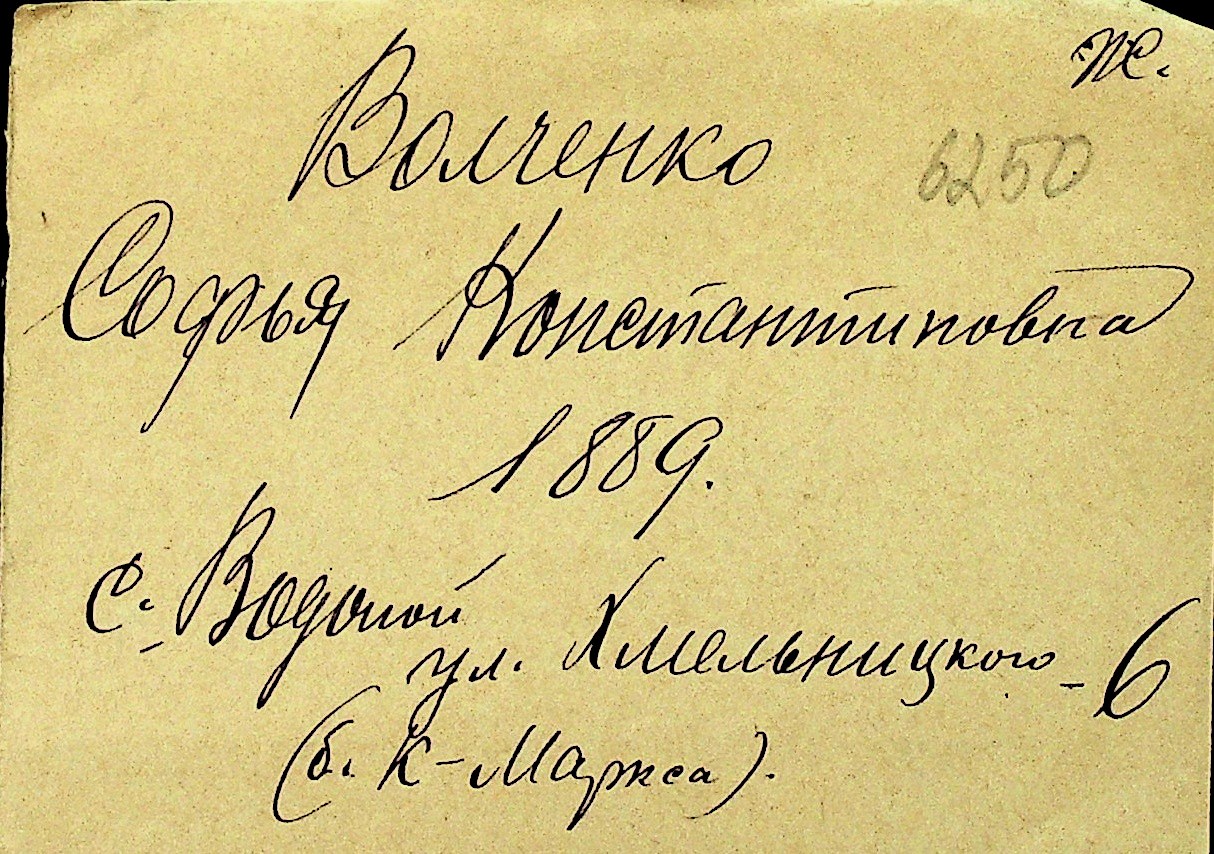 Ж.
Волченко
6250
Софья Константиновна
1889.
с. Водопой
ул. Хмельницкого - 6
(б. К-Маркса).